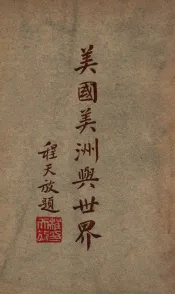 美國美洲與世界
程天放題